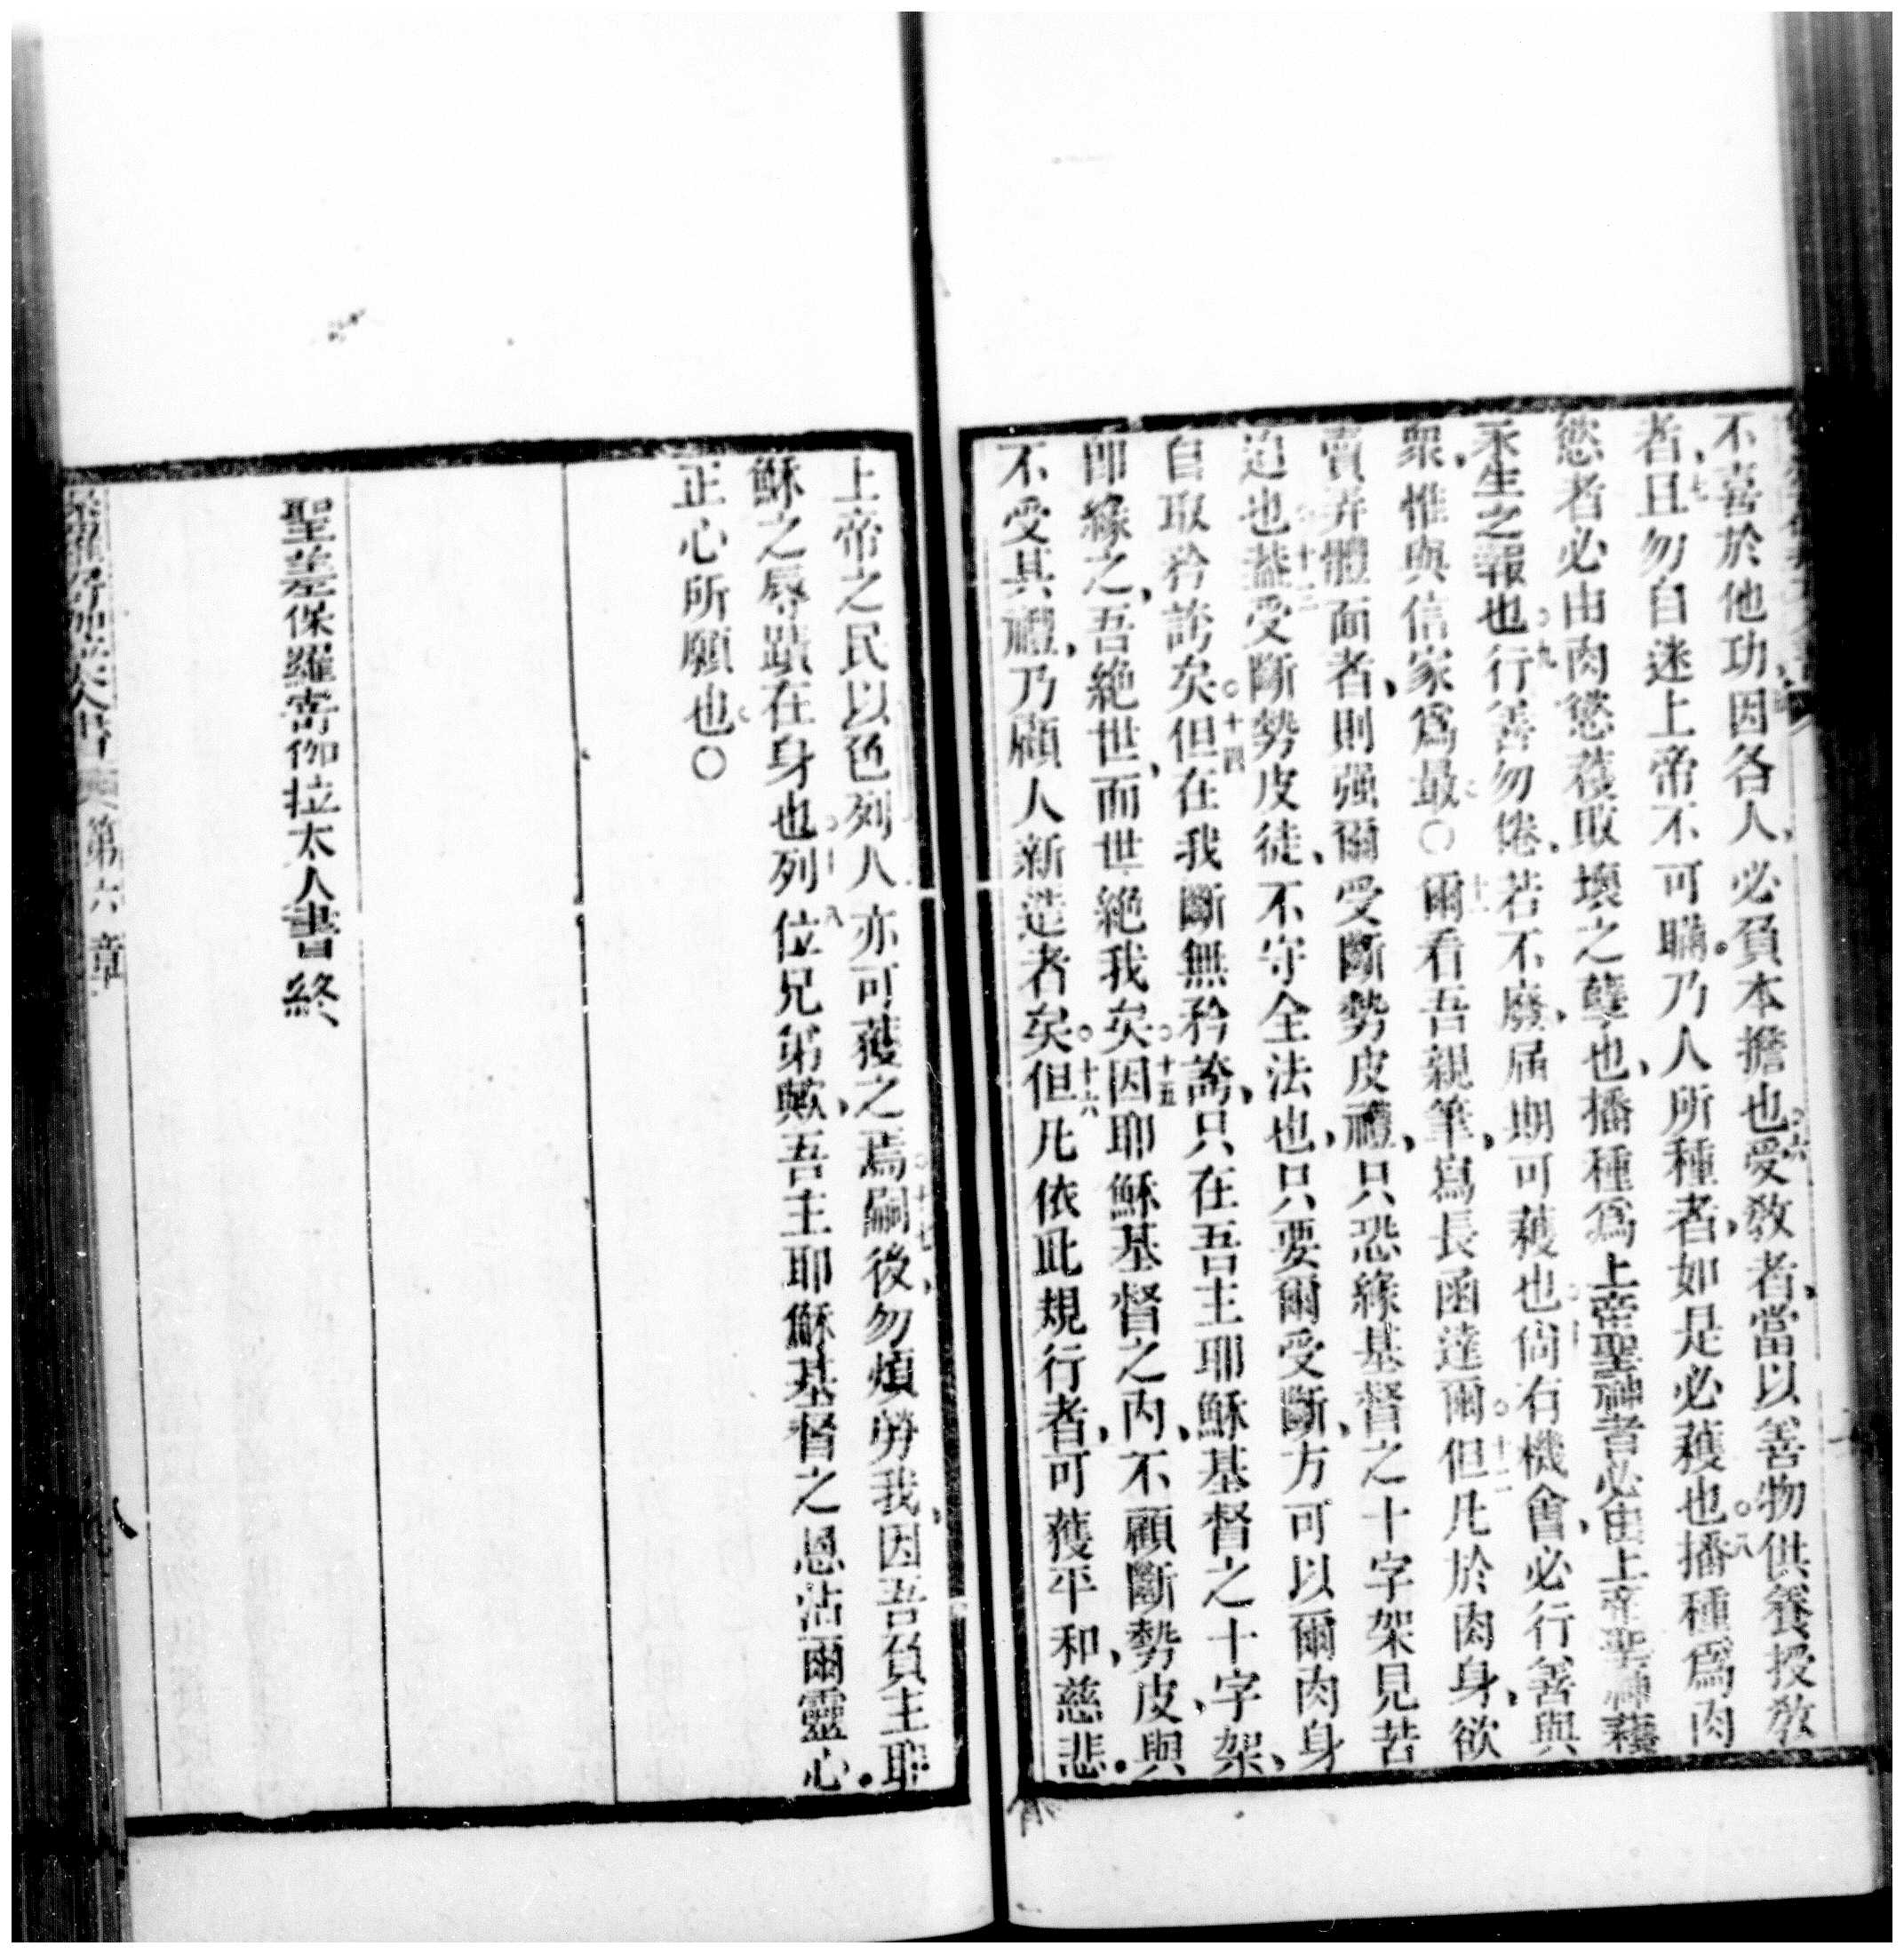 不喜於他功、因各人、必負本擔也○六受敎者、當以善物供養授敎
者、七且勿自迷上帝不可瞞。乃人所種者、如是必穫也○八播種爲肉
慾者必由肉慾穫敗壞之孽也、播種爲上帝聖神者必由上帝聖神穫
永生之報也○九行善勿倦、若不廢、屆期可穫也○十尙有機會、必行善與
眾、惟與信家爲最○十一爾看吾親筆、寫長函達爾○十二但凡於肉身、欲
賣弄體面者、則强爾受斷勢皮禮、只恐緣基督之十字架見苦
迫也○十三蓋受斷勢皮徒、不守全法也、只要爾受斷、方可以爾肉身
自取矜誇矣○十四但在我斷無矜誇、只在吾主耶穌基督之十字架、
卽緣之、吾絶世、而世絶我矣○十五因耶穌基督之內、不顧斷勢皮、與
不受其禮、乃顧人新造者矣○十六但凡依此規行者、可獲平和、慈悲。
上帝之民以色列人亦可獲之、之焉○十七嗣後、勿煩勞我、因吾負主耶
穌之辱蹟在身也○十八列位兄弟歟、吾主耶穌基督之恩沾爾靈心。
正心所願也○
聖差保羅寄伽拉太人書終
第六章
八